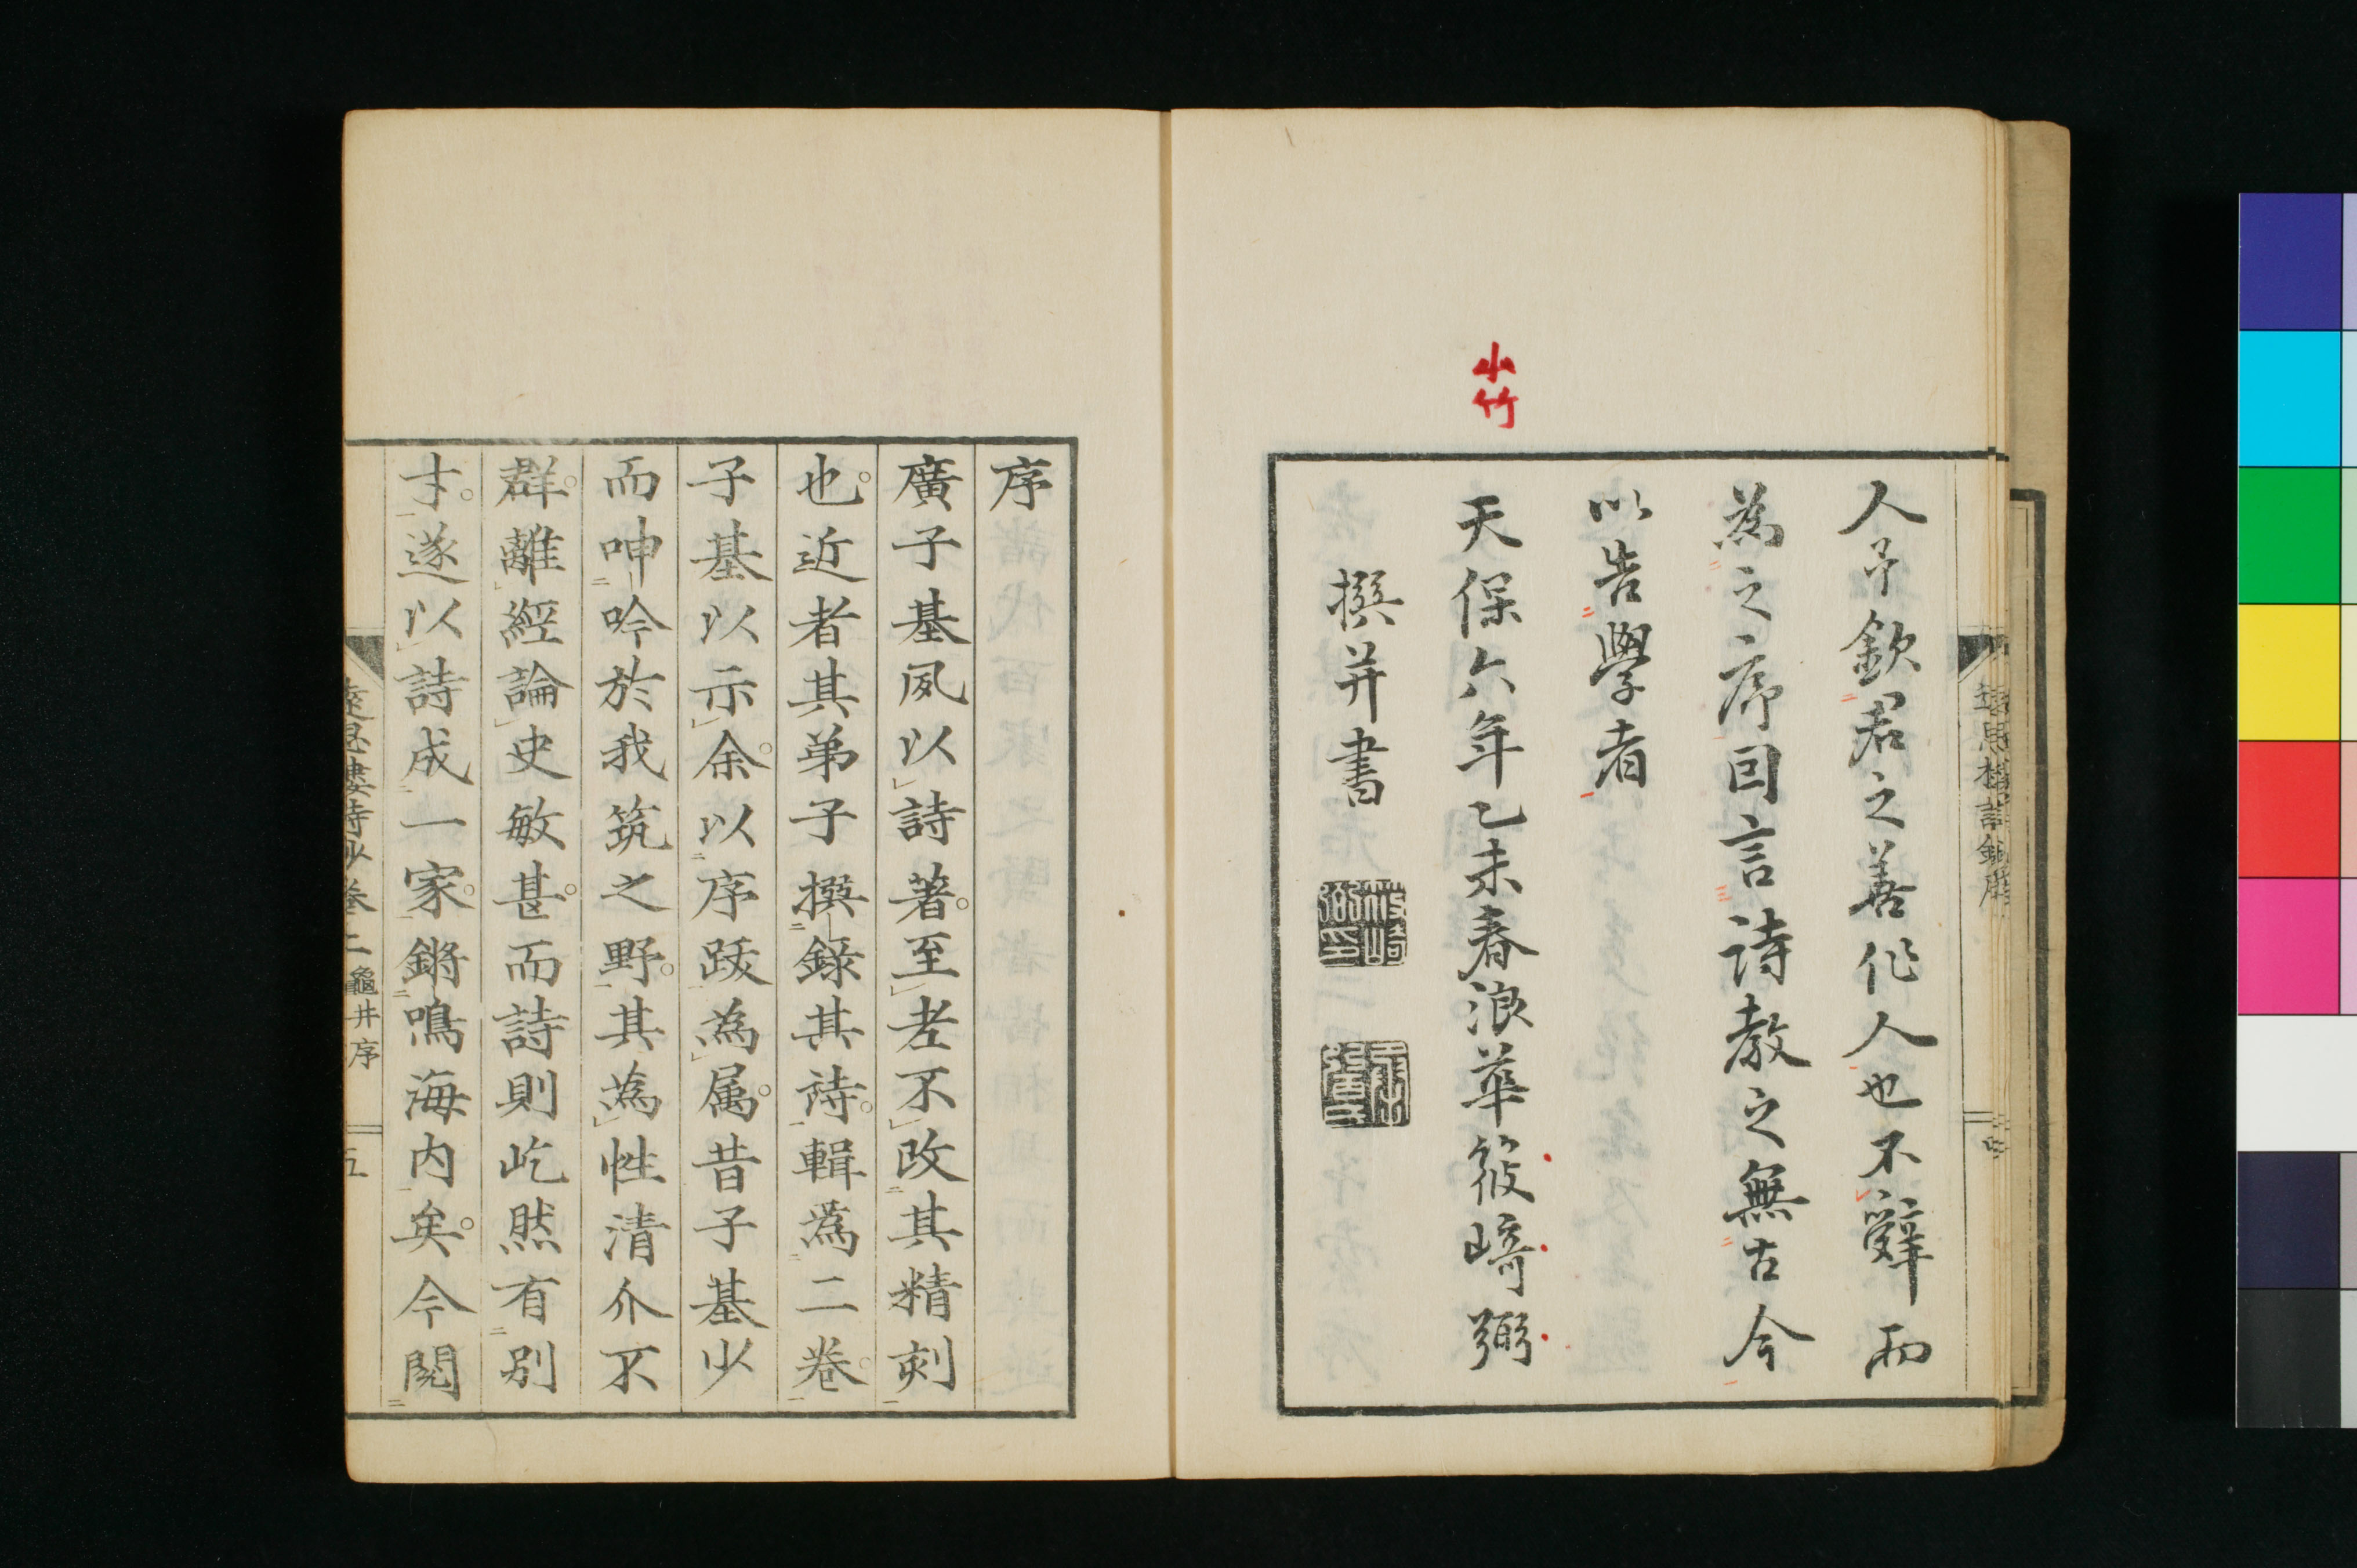 小竹
人予欽君之善作人也不辭而
為之序因言詩教之無古今
以告學者
天保六年乙未春浪華筱﨑弼
撰并書
遠思樓詩鈔序
四
序
廣子基夙以詩著至老不改其精刻
也近者其弟子撰錄其詩輯為二卷
子基以示余以序跋為属昔子基少
而呻吟於我筑之野其為性清介不
群離經論史敏甚而詩則屹然有別
才遂以詩成一家鏘鳴海內矣今閱
遠思樓詩鈔卷二 龜井序
五